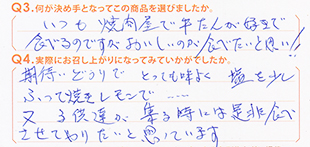 Q3.何が決め手となってこの商品を選びましたか。
いつも焼肉屋で牛たんが好きで
食べるのですがおいしいのが食べたいと思い!!
Q4.実際にお召し上がりになってみていかがでしたか。
期待どうりで とっても味よく 塩を少し
ふって焼きレモンで……
又子供達が集る時には是非食べ
させてやりたいと思っています